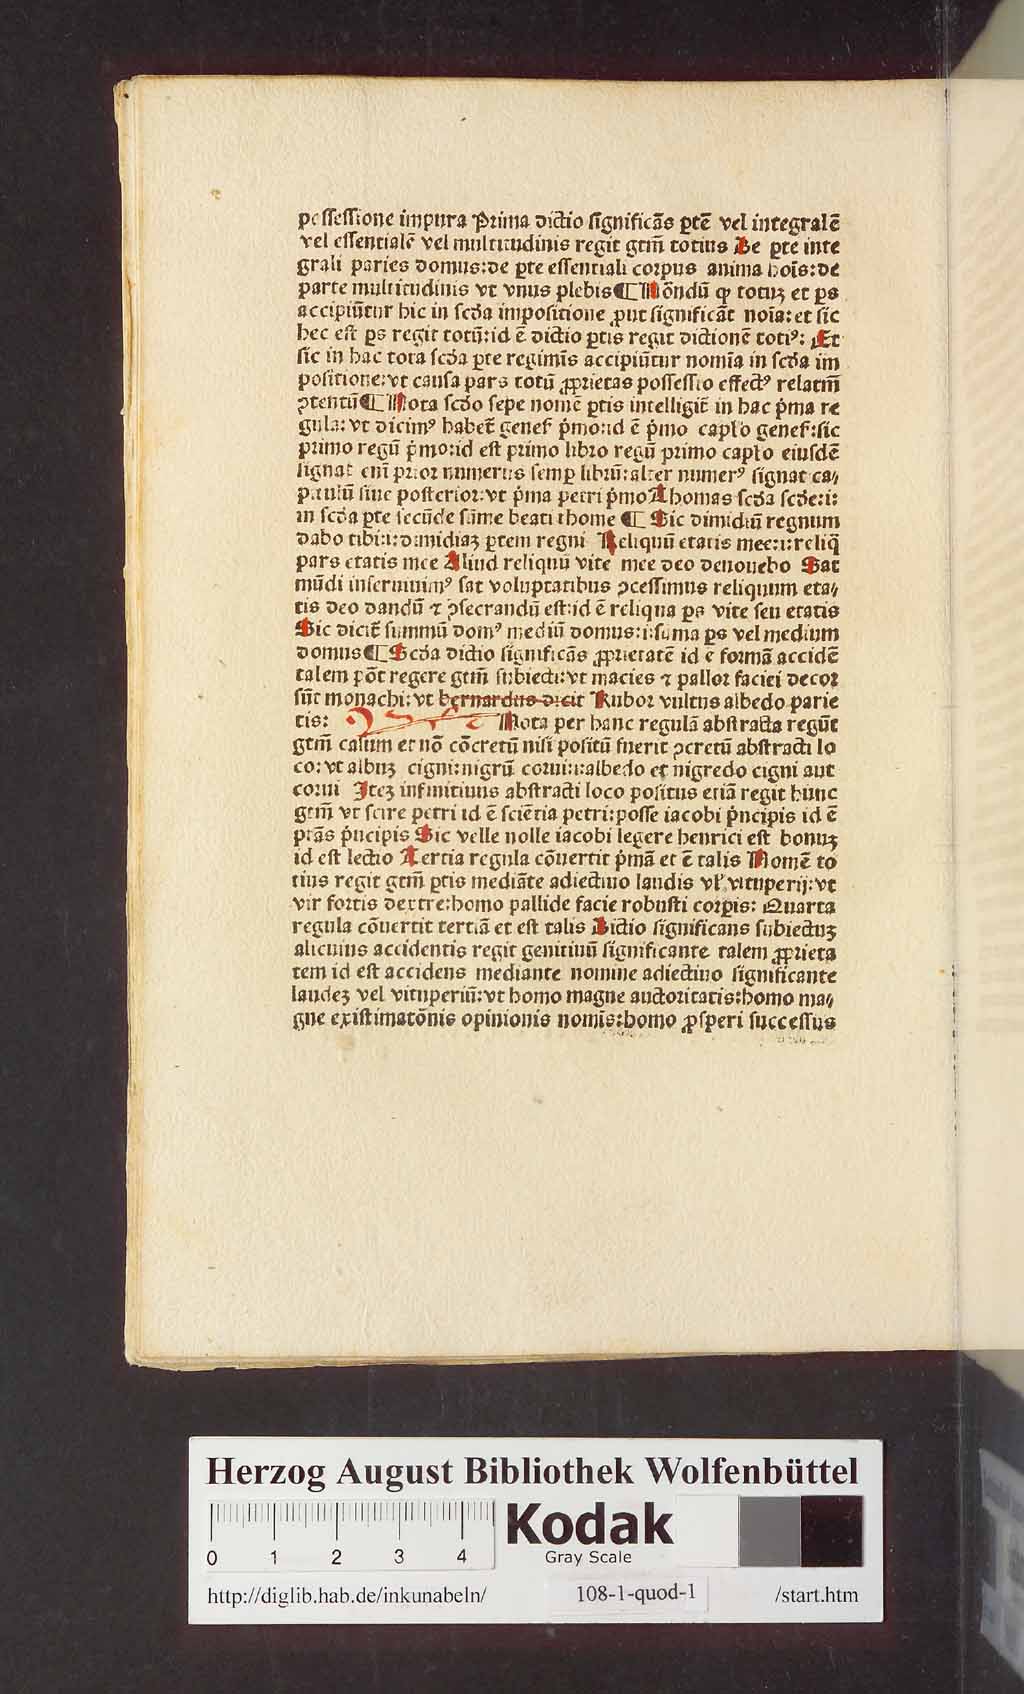 possessione impura Prima dictio significãs ꝑtẽ vel integralẽ
vel essentialẽ vel multitudinis regit gtm̃ totius De ꝑte inte
grali paries domus: de ꝑte essentiali corpus anima hoĩs: de
parte multitudinis vt vnus plebis ¶ Nõndũ ꝙ totuꝫ et ꝑs
accipiũtur hic in scďa impositione ꝓut significãt noĩa: et sic
hec est ꝑs regit totũ: id ẽ dictio ꝑtis regit dictionẽ totiꝰ: Et
sic in hac tota scďa ꝑte regimĩs accipiũtur nomĩa in scďa im
positione: vt causa pars totũ ꝓprietas possessio effectꝰ relatm̃
ꝯtentũ ¶ Nota scďo sepe nomẽ ꝑtis intelligit̃ in hac p̃ma re
gula: vt dicimꝰ habet̃ genes̃ p̃mo: id ẽ p̃mo capł'o genes̃: sic
primo regũ p̃mo: id est primo libro regũ primo capł'o eiusdẽ
signat eni̇̃ prior numerus semꝑ librũ: alter numerꝰ signat ca⸗
pitulũ siue posterior: vt p̃ma petri p̃mo Thomas scďa scďe: i:
in scďa ꝑte secũde sũme beati thome ¶ Sic dimidiũ regnum
dabo tibi: i: dimidiaꝫ ꝑtem regni Reliquũ etatis mee: i: reliq̃
pars etatis mee Aliud reliquũ vite mee deo deuouebo Sat
mũdi inseruiuimꝰ sat voluptatibus ꝯcessimus reliquum eta⸗
tis deo dandũ ⁊ ꝯsecrandũ est: id ẽ reliqua ꝑs vite seu etatis
Sic dicit̃ summũ domꝰ mediũ domus: i: sũma ꝑs vel medium
domus ¶ Scďa dictio significãs ꝓprietatẽ id ẽ formã accidẽ
talem põt regere gtm̃ subiecti: vt macies ⁊ pallor faciei decor
sũt monachi: vt bernardus dicit Rubor vultus albedo parie
tis: Nota per hanc regulã abstracta regũt
gtm̃ casum et nõ cõcretũ nisi positũ fuerit ꝯcretũ abstracti lo
co: vt albuꝫ cigni: nigrũ corui: i: albedo et nigredo cigni aut
corui Iteꝫ infinitiuus abstracti loco positus etiã regit hunc
gtm̃ vt scire petri id ẽ sciẽtia petri: posse iacobi p̃ncipis id ẽ
ptãs p̃ncipis Sic velle nolle iacobi legere henrici est bonuꝫ
id est lectio Tertia regula cõuertit p̃mã et ẽ talis Nomẽ to
tius regit gtm̃ ꝑtis mediãte adiectiuo laudis vł' vituperij: vt
vir fortis dextre: homo pallide facie robusti corꝑis: Quarta
regula cõuertit tertiã et est talis Dictio significans subiectuꝫ
alicuius accidentis regit genitiuũ significante talem ꝓprieta
tem id est accidens mediante nomine adiectiuo significante
laudeꝫ vel vituperiũ: vt homo magne auctoritatis: homo ma⸗
gne existimatõnis opinionis nomĩs: homo ꝓsperi successus
Herzog August Bibliothek Wolfenbüttel
0 1 2 3 4
Kodak
Gray Scale
http://diglib.hab.de/inkunabeln/ 108-1-quod-1 /start.htm